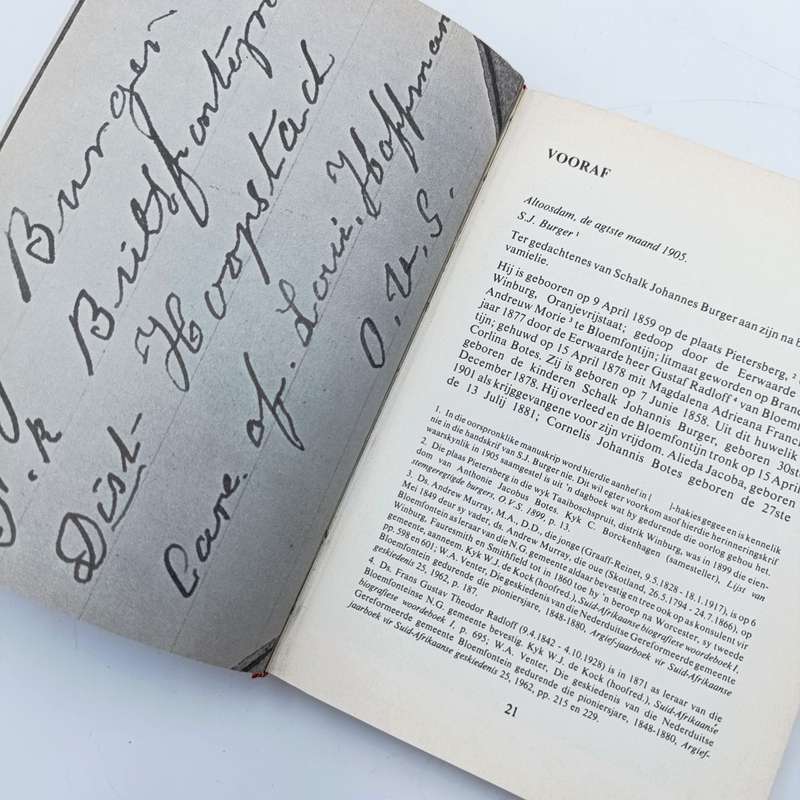 Burger
Brits fontijn
P.k Hoopstad
Dist
Care of. Loui. Hoffman
O. V. S.
VOORAF
Altoosdam, de agtste maand 1905.
S.J. Burger ¹
Ter gedachtenes van Schalk Johannes Burger aan zijn na b
vamielie.
Hij is gebooren op 9 April 1859 op de plaats Pietersberg, ²
Winburg, Oranjevrijstaat; gedoop door de Eerwaarde
Andreuw Morie ³ te Bloemfontijn; litmaat geworden op Brand
jaar 1877 door de Eerwaarde heer Gustaf Radloff ⁴ van Bloem
tijn; gehuwd op 15 April 1878 met Magdalena Adrieana Franc
Corlina Botes. Zij is geboren op 7 Junie 1858. Uit dit huwelik
geboren de kinderen Schalk Johannis Burger, geboren 30st
December 1878. Hij overleed en de Bloemfontijn tronk op 15 April
1901 als krijggevangene voor zijn vrijdom, Alieda Jacoba, geboren
de 13 Julij 1881; Cornelis Johannis Botes geboren de 27ste
1. In die oorspronklike manuskrip word hierdie aanhef in [ ]-hakies gegee en is kennelik
nie in die handskrif van S.J. Burger nie. Dit wil egter voorkom asof hierdie herinneringskrif
waarskynlik in 1905 saamgestel is uit 'n dagboek wat by gedurende die oorlog gehou het.
2. Die plaas Pietersberg in die wyk Taaiboschspruit, distrik Winburg, was in 1899 die eien-
dom van Anthonie Jacobus Botes. Kyk C. Borckenhagen (samesteller), Lijst van
stemgeregtigde burgers, O.V.S. 1899, p. 13.
3. Ds. Andrew Murray, M.A., D.D., die jonge (Graaff-Reinet, 9.5.1828 - 18.1.1917), is op 6
Mei 1849 deur sy vader, ds. Andrew Murray, die oue (Skotland, 26.5.1794 - 24.7.1866), op
Bloemfontein as leraar van die N.G. gemeente aldaar bevestig en tree ook op as konsulent vir
Winburg, Fauresmith en Smithfield tot in 1860 toe hy 'n beroep na Worcester, sy tweede
gemeente, aanneem. Kyk W.J. de Kock (hoofred.), Suid-Afrikaanse biografiese woordeboek I,
pp. 598 en 601; W.A. Venter, Die geskiedenis van die Nederduitse Gereformeerde gemeente
Bloemfontein gedurende die pioniersjare, 1848-1880, Argief-jaarboek vir Suid-Afrikaanse
geskiedenis 25, 1962, p. 187.
4. Ds. Frans Gustav Theodor Radloff (9.4.1842 - 4.10.1928) is in 1871 as leraar van die
Bloemfonteinse N.G. gemeente bevestig. Kyk W.J. de Kock (hoofred.), Suid-Afrikaanse
biografiese woordeboek I, p. 695; W.A. Venter, Die geskiedenis van die Nederduitse
Gereformeerde gemeente Bloemfontein gedurende die pioniersjare, 1848-1880, Argief-
jaarboek vir Suid-Afrikaanse geskiedenis 25, 1962, pp. 215 en 229.
21